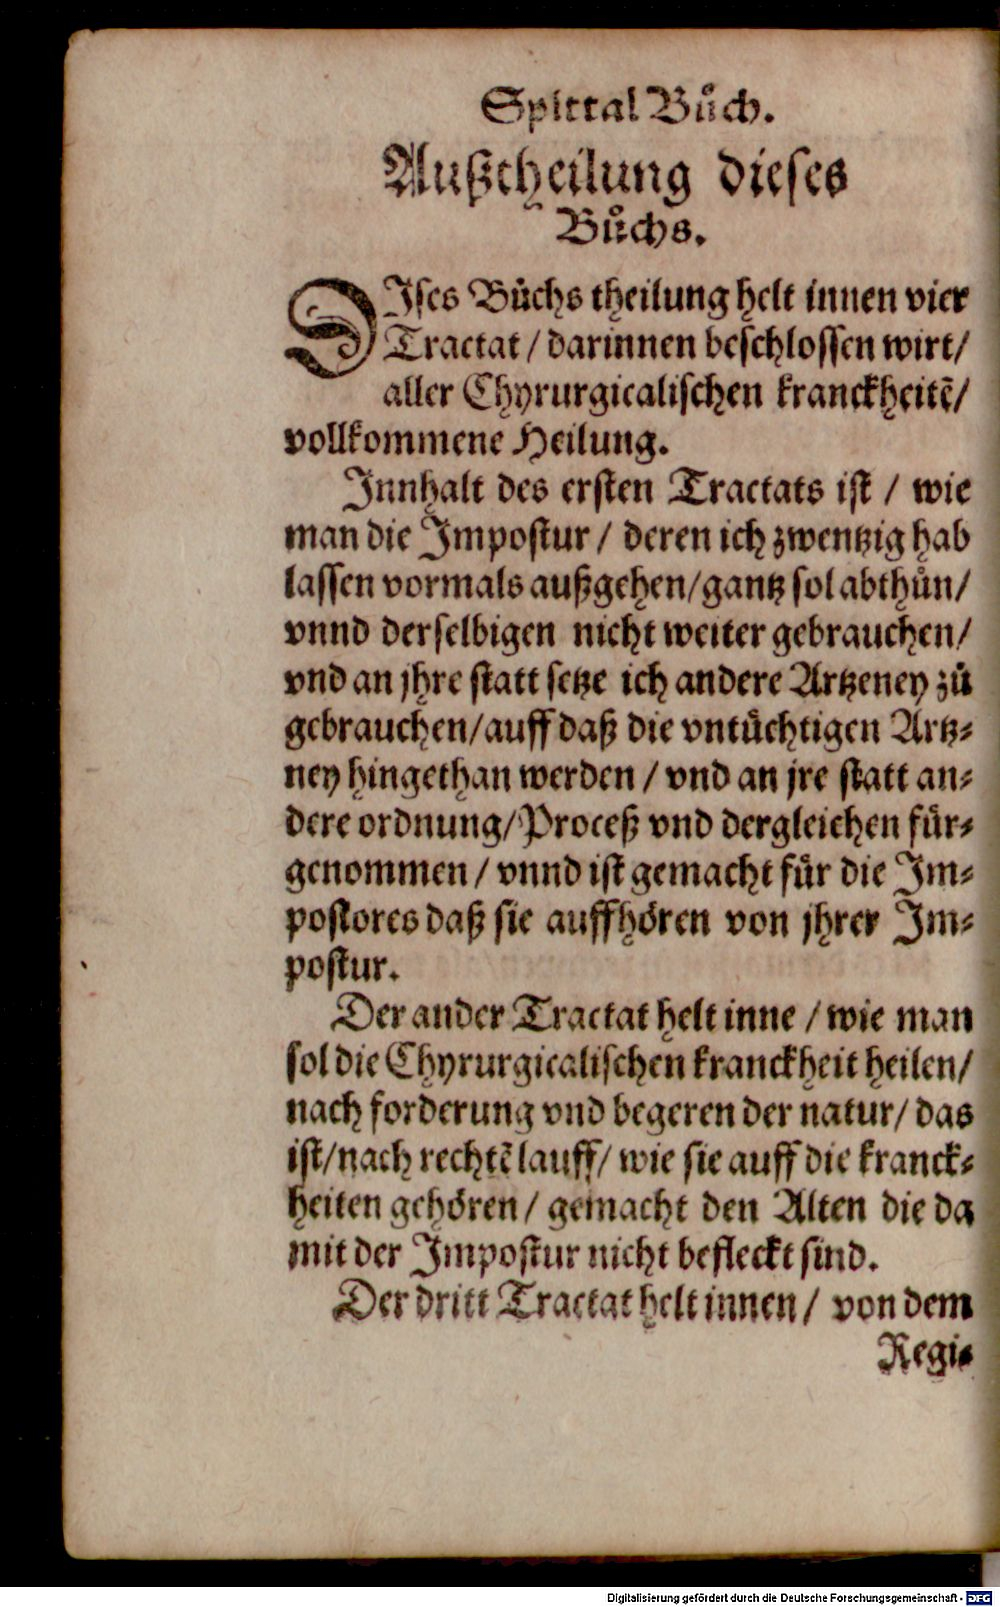 Spittal Bůch.
Außtheilung dieses
Bůchs.
DIses Bůchs theilung helt innen vier
Tractat / darinnen beschlossen wirt/
aller Chyrurgicalischen kranckheitẽ/
vollkommene Heilung.
Innhalt des ersten Tractats ist / wie
man die Impostur / deren ich zwentzig hab
lassen vormals außgehen/gantz sol abthůn/
vnnd derselbigen nicht weiter gebrauchen/
vnd an jhre statt setze ich andere Artzeney zů
gebrauchen/auff daß die vntüchtigen Artz-
ney hingethan werden / vnd an jre statt an-
dere ordnung/Proceß vnd dergleichen für-
genommen / vnnd ist gemacht für die Im-
postores daß sie auffhören von jhrer Im-
postur.
Der ander Tractat helt inne / wie man
sol die Chyrurgicalischen kranckheit heilen/
nach forderung vnd begeren der natur/ das
ist/nach rechtẽ lauff/ wie sie auff die kranck-
heiten gehören / gemacht den Alten die da
mit der Impostur nicht befleckt sind.
Der dritt Tractat helt innen / von dem
Regi-
Digitalisierung gefördert durch die Deutsche Forschungsgemeinschaft - DFG